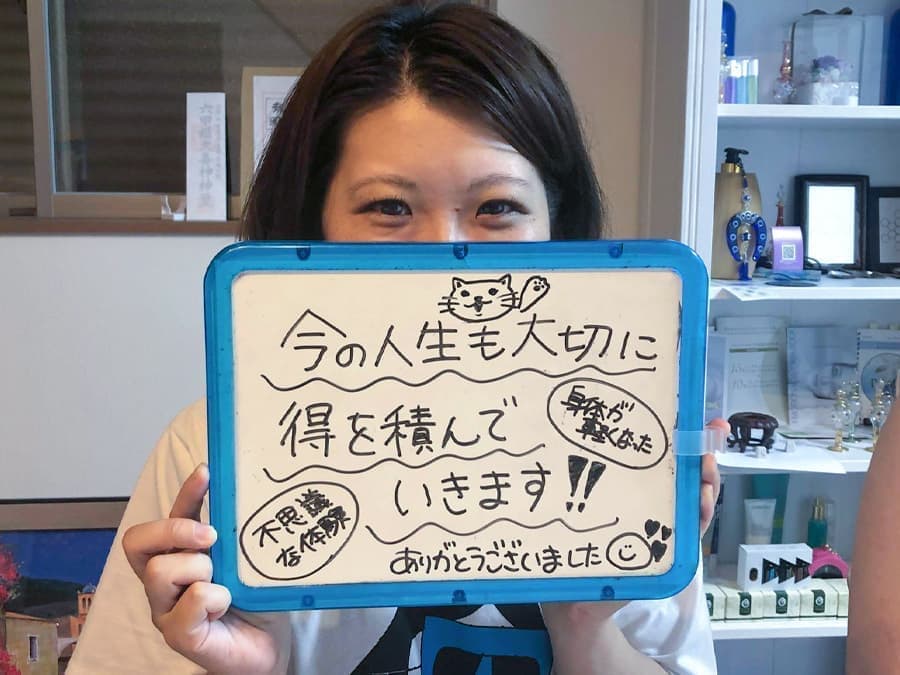 今の人生も大切に
得を積んで
いきます!!
身体が
軽くなった
不思議
な体験
ありがとうございました